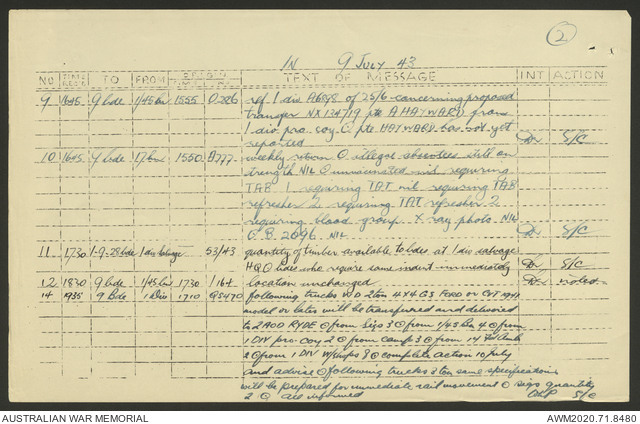 2
IN 9 JULY 43
NO TIME RECD. TO FROM ORIGIN TEXT OF MESSAGE INT ACTION
9 1645 9 bde 1/45 bn 1555 O.286 ref 1 div A6848 of 25/6 concerning proposed
transfer NX134719 pte A HAYWARD from
1 div pro. coy O pte HAYWARD has not yet
reported S/C
10 1645 9 bde 17 bn 1550 A777 weekly return O illegal absentees still on
strength NIL O unvaccinated nil requiring
TAB 1 requiring TAT nil requiring TAB
refresher 2 requiring TAT refresher 2
requiring blood group X ray photo NIL
O.B. 2096 NIL S/C
11 1730 1-9-28 bde 1 div salvage 53/43 quantity of timber available to bdes at 1 div salvage
HQ O bdes who require same indent immediately S/C
12 1830 9 bde 1/45 bn 1730 1164 location unchanged noted
14 1935 9 Bde 1 Div 1710 QS470 following trucks WD 2 ton 4x4 GS FORD or CVT 1941
model or later will be transferred and delivered
to 2 AOD RYDE O from Sigs 3 O from 1/45 bn 4 O from
1 DIV pro coy 2 O from camps 3 O from 14 Fd Amb
2 O from 1 DIV W/shops 3 O complete action 10 july
and advise O following trucks 3 ton same specifications
will be prepared for immediate rail movement O sigs quantity
2 O all informed S/C
AUSTRALIAN WAR MEMORIAL
AWM2020.71.8480